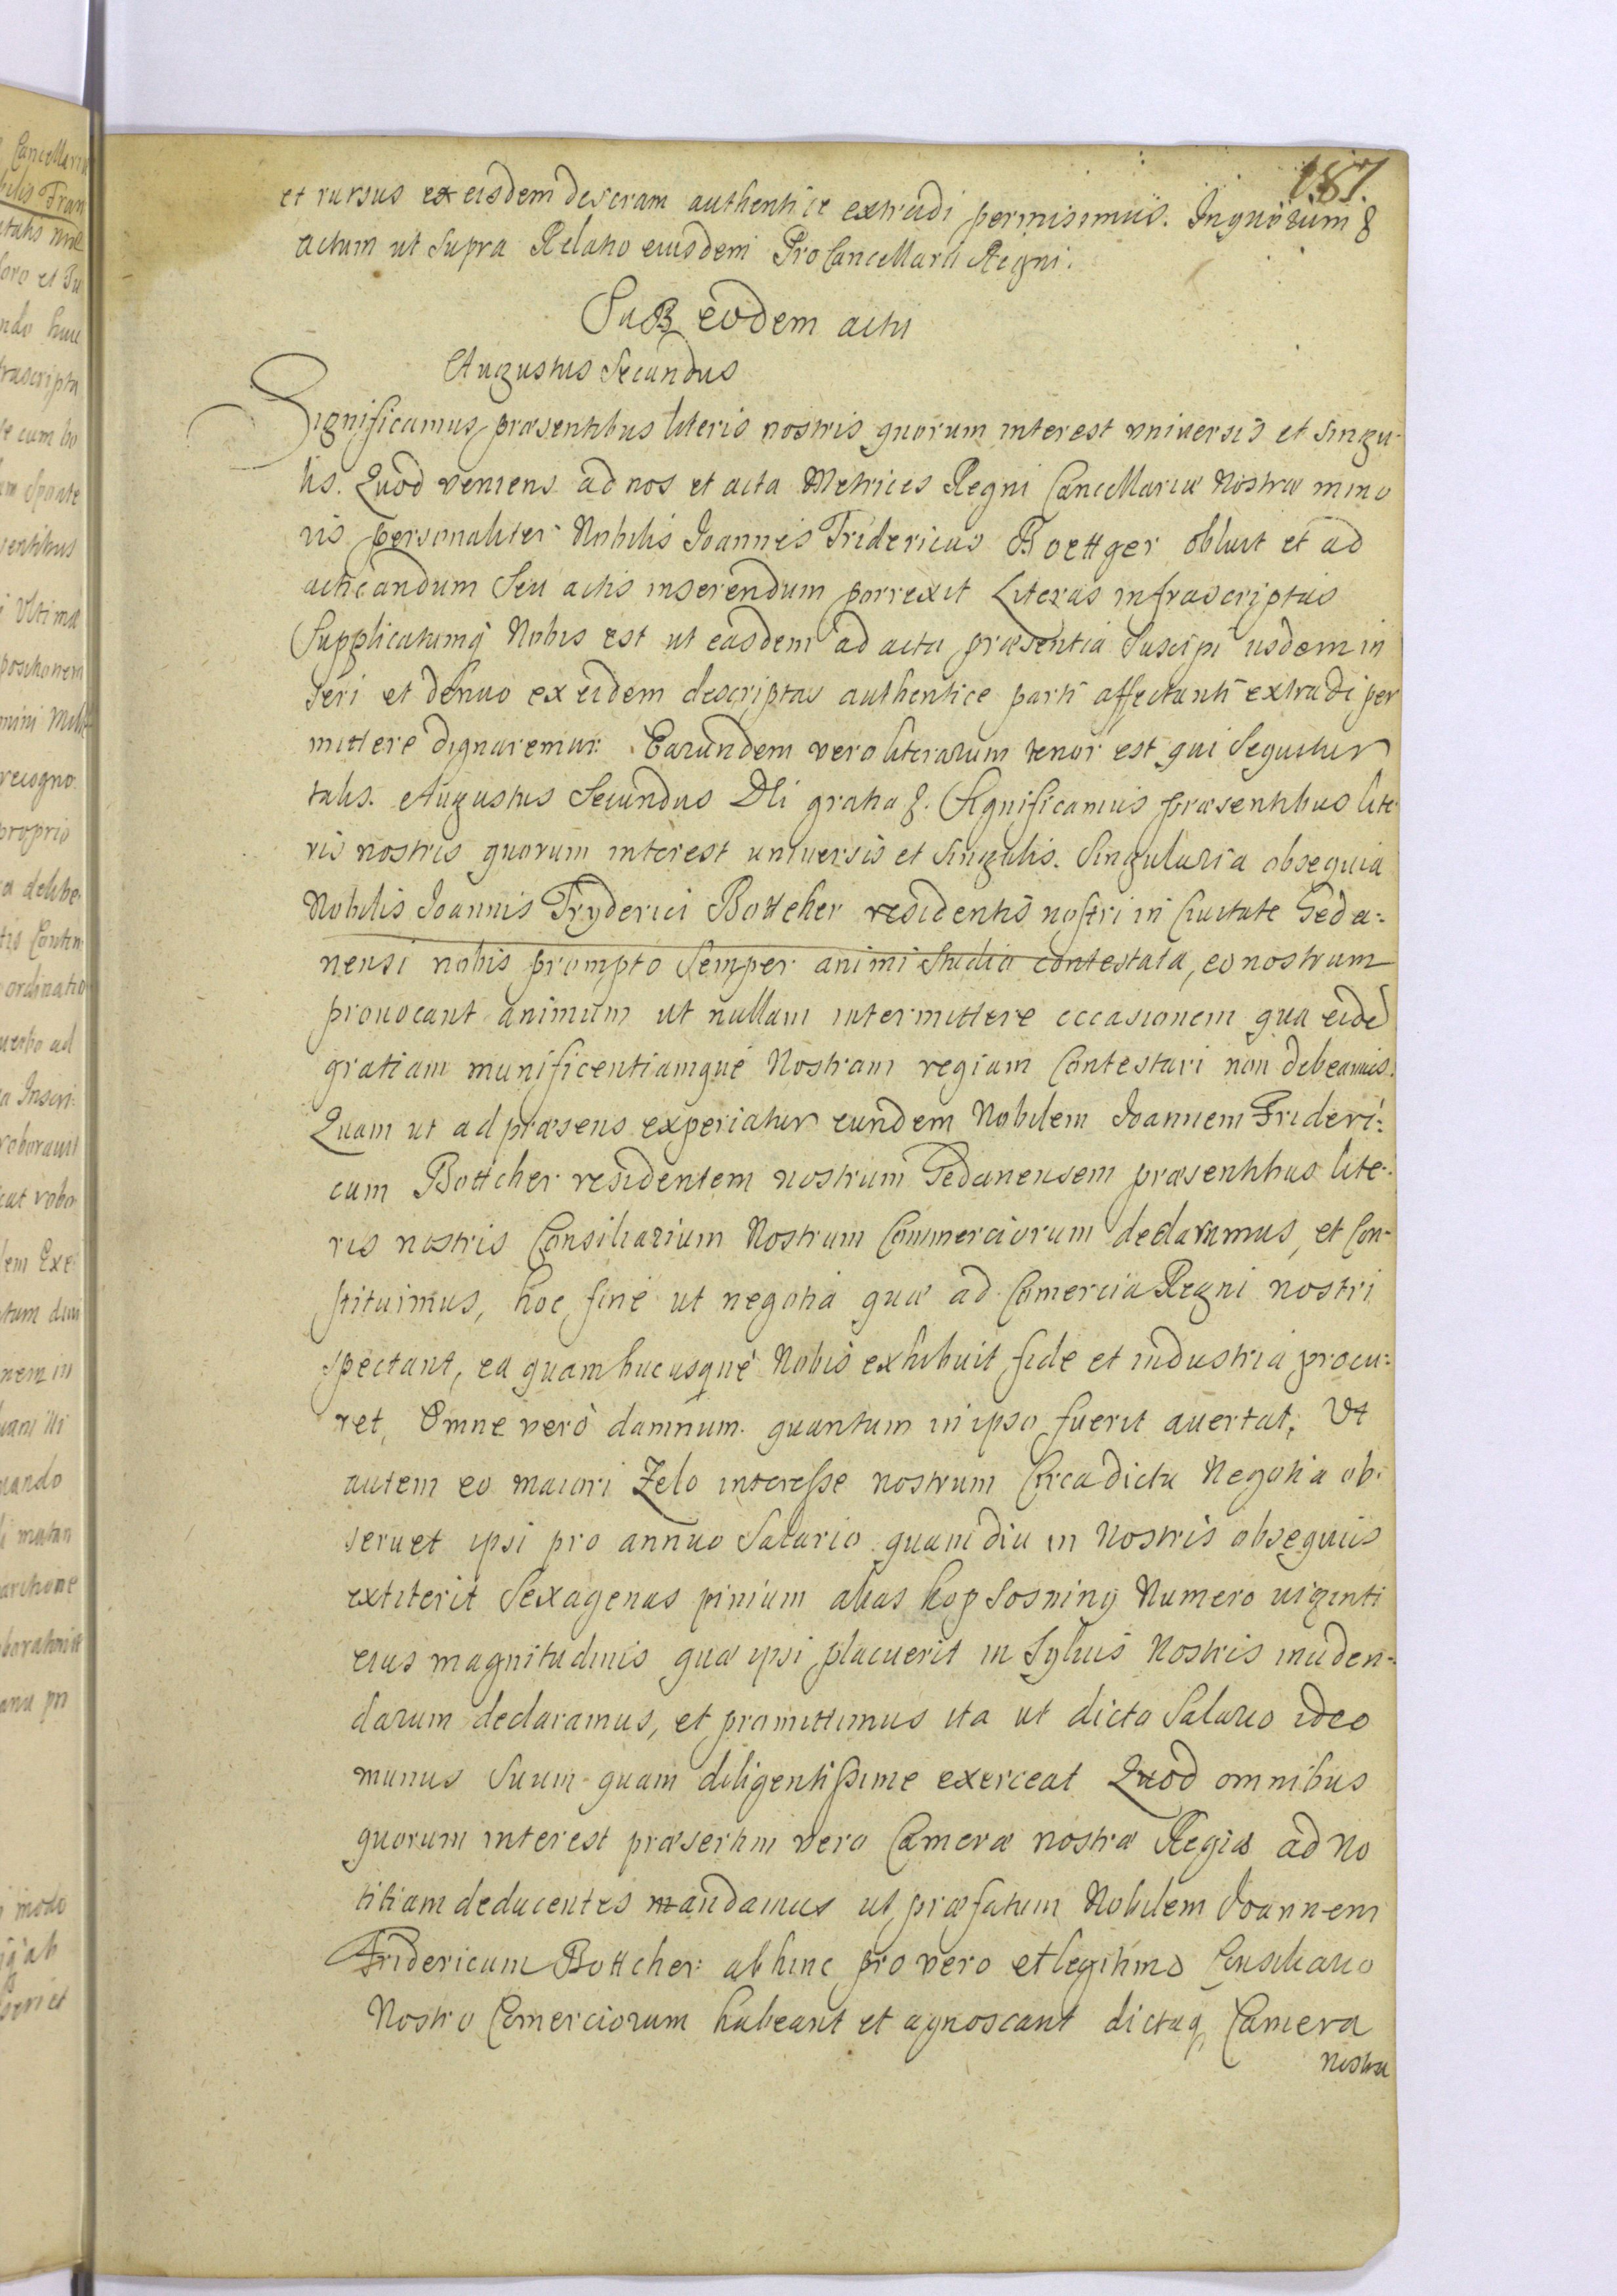 187.
et rursus ex eisdem descram authentice extradi permisimus. In quorum &
actum ut supra Relatio eiusdem ProCancellarii Regni.
Sub eodem actu
Augustus Secundus
Significamus præsentibus literis nostris quorum interest vniuersis et singu-
lis. Quod veniens ad nos et acta Metrices Regni Cancellariæ Nostræ mino
ris personaliter Nobilis Ioannes Fridericus Boettger obtulit et ad
acticandum seu actis inserendum porrexit Literas infrascriptas
Supplicatumq́ Nobis est ut easdem ad acta præsentia suscipi iisdem in
seri et denuo ex eidem descriptas authentice parti affectanti extradi per
mittere dignaremur. Earundem vero literarum tenor est qui sequitur
talis. Augustus Secundus Dei gratia &. Significamus præsentibus lite
ris nostris quorum interest universis et singulis. Singularia obsequia
Nobilis Ioannis Fryderici Bottcher residentis nostri in Ciuitate Geda-
nensi nobis prompto semper animi studio contestata, eo nostrum
prouocant animum ut nullam intermittere occasionem qua eidē
gratiam munificentiamque Nostram regiam Contestari non debeamus.
Quam ut ad præsens experiatur eundem Nobilem Ioannem Frideri-
cum Bottcher residentem nostrum Gedanensem præsentibus lite-
ris nostris Consiliarium Nostrum Commerciorum declaramus, et Con-
stituimus, hoc fine ut negotia quæ ad Comercia Regni nostri
spectant, ea quam hucusque Nobis exhibuit fide et industria procu-
ret, Omne verò damnum quantum in ipso fuerit auertat. Vt
autem eo maiori Zelo interesse nostrum Circa dicta Negotia ob-
seruet ipsi pro annuo Salario quamdiu in Nostris obsequiis
extiterit Sexagenas pinium alias kop Sosniny Numero uiginti
eius magnitudinis quæ ipsi placuerit in Syluis Nostris inciden-
darum declaramus, et promittimus ita ut dicto Salario ideo
munus suum quam diligentissime exerceat Quod omnibus
quorum interest præsertim vero Cameræ nostræ Regiæ ad No
titiam deducentes mandamus ut præfatum Nobilem Ioannem
Fridericum Bottcher abhinc pro vero et legitimo Consiliario
Nostro Comerciorum habeant et agnoscant dictaq, Camera
Nostra